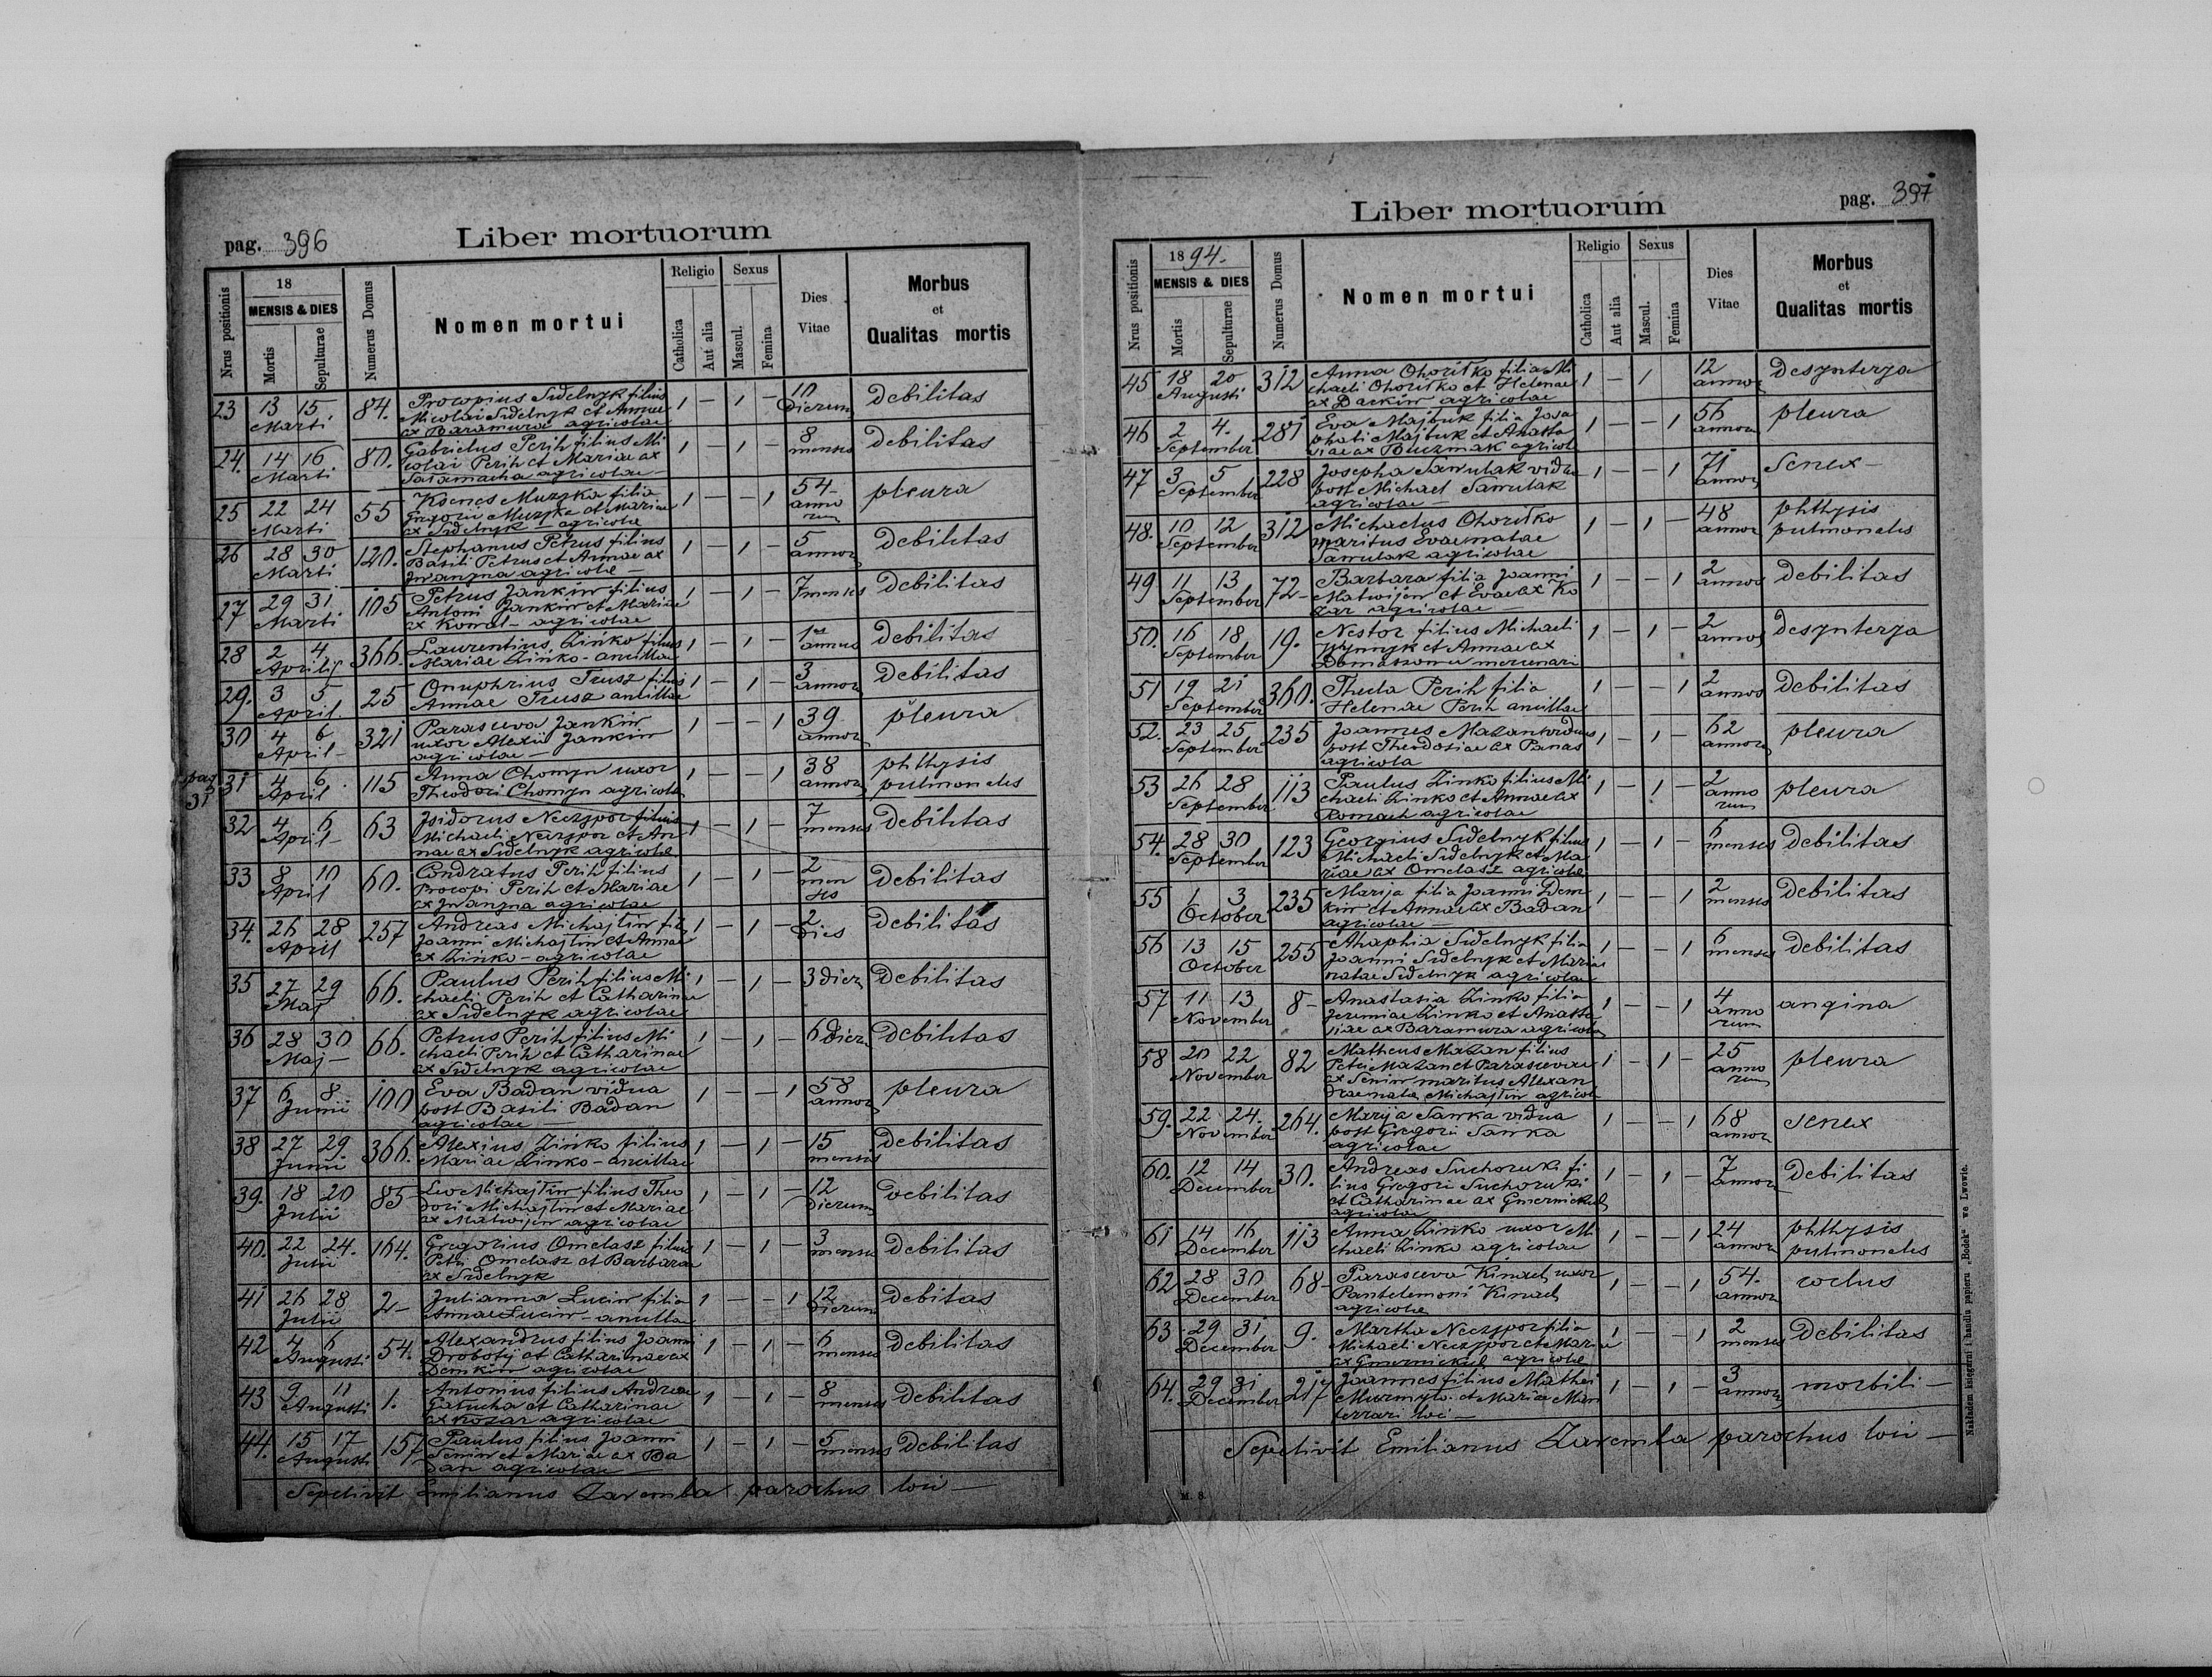 pag. 396
Liber mortuorum
Nrus positionis
18
MENSIS & DIES
Mortis
Sepulturae
Numerus Domus
Nomen mortui
Religio
Catholica
Aut alia
Sexus
Mascul.
Femina
Dies
Vitae
Morbus
et
Qualitas mortis
23 13 15. Marti 84. Procopius Sidelnyk filius 1 – 1 – 10 Dierum Debilitas
Nicolai Sidelnyk et Annae
ex Baramura agricolae
24. 14 16. Marti 80. Gabrielus Perih filius Mi 1 – 1 – 8 menses debilitas
colai Perih et Mariae ex
Salamacha agricolae –
25 22 24 Marti 55 Ksenes Muzyka filia 1 – – 1 54 anno rum pleura
Gregorii Muzyka et Mariae
ex Sidelnyk – agricolae
26 28 30 Marti 120. Stephanus Petrus filius 1 – 1 – 5 annor Debilitas
Basili Petrus et Annae ex
Iwanyna agricolae –
27 29 31. Marti 105 Petrus Jankiw filius 1 – 1 – 7 menses Debilitas
Antoni Jankiw et Mariae
ex Kowal – agricolae
28 2 4. Aprilis 366. Laurentius Zinko filius 1 – 1 – 1 annus debilitas
Mariae Zinko – ancillae
29. 3 5 April. 25 Onuphrius Trusz filius 1 – 1 – 3 annor Debilitas
Annae Trusz ancillae
30 4 6 April – 321 Parasceva Jankiw 1 – – 1 39 annor pleura
uxor Alexii Jankiw
agricolae –
pag 31 4 6. April 115 Anna Chomyn uxor 1 – – 1 38 annor phthysis
Theodori Chomyn agricolae pulmonales
32 4 6 April – 63 Isidorus Neczypor filius 1 – 1 – 7 menses Debilitas
Michaeli Neczypor et An
nae ex Sidelnyk agricolae
33 8 10 April 60. Condratus Perih filius 1 – 1 – 2 men ses Debilitas
Procopi Perih et Mariae
ex Iwanyna agricolae
34. 26 28 April 257 Andreas Michajliw fil. 1 – 1 – 2 Dies Debilitas
Joanni Michajliw et Annae
ex Zinko – agricolae
35 27 29 Maj 66. Paulus Perih filius Mi 1 – 1 – 3 dier Debilitas
chaeli Perih et Catharinae
ex Sidelnyk agricolae
36 28 30 Maj – 66. Petrus Perih filius Mi 1 – 1 – 6 Dier Debilitas
chaeli Perih et Catharinae
ex Sidelnyk agricolae
37 6 8. Junii 100 Eva Badan vidua 1 – – 1 58 annor pleura
post Basili Badan
agricolae –
38 27 29. Junii 366. Alexius Zinko filius 1 – 1 – 15 mensis Debilitas
Mariae Zinko – ancillae
39. 18 20 Julii 85 Leo Michajliw filius Theo 1 – 1 – 12 Dierum Debilitas
dori Michajliw et Mariae
ex Matwijiw agricolae
40. 22 24. Julii 164. Gregorius Omelasz filius 1 – 1 – 3 menses Debilitas
Petri Omelasz et Barbarae
ex Sidelnyk
41 26 28 Julii 2 – Julianna Luciw filia 1 – – 1 12 Dierum Debitas
Annae Luciw – ancilla
42 4 6 Augusti 54. Alexandrus filius Joanni 1 – 1 – 6 menses Debilitas
Drobotij et Catharinae ex
Demkiw agricolae
43 9 11 Augusti 1. Antonius filius Andreae 1 – 1 – 8 menses Debilitas
Galucha et Catharinae
ex Kozar agricolae
44. 15 17 Augusti 157 Paulus filius Joanni 1 – 1 – 5 menses Debilitas
Seniw et Mariae ex Ba
dan agricolae –
Sepelivit Emilianus Zaremba parochus loci –
Liber mortuorum
pag. 397
Nrus positionis
1894.
MENSIS & DIES
Mortis
Sepulturae
Numerus Domus
Nomen mortui
Religio
Catholica
Aut alia
Sexus
Mascul.
Femina
Dies
Vitae
Morbus
et
Qualitas mortis
45 18 20 Augusti 312 Anna Ohoriłko filia Mi 1 – 1 12 annor Desynterya
chaeli Ohoriłko et Helenae
ex Dackiw agricolae
46 2 4. September 281 Eva Majbuk filia Josa 1 – – 1 56 annor pleura
phati Majbuk et Anasta
siae ex Buczmak agricol
47 3 5 September 228 Josepha Sawulak vidua 1 – – 1 71 annor Senex –
post Michael Sawulak
agricolae –
48. 10 12 September 312 Michaelus Ohoriłko 1 – 1 – 48 annor phthysis
maritus Evae natae pulmonales
Sawulak agricolae
49 11 13 September 72 – Barbara filia Joanni 1 – – 1 2 annos Debilitas
Matwijiw et Evae ex Ko
zar agricolae –
50. 16 18 September 19. Nestor filius Michaeli 1 – 1 – 2 annos desynterya
Wynnyk et Annae ex
mercenari
51 19 21 September 360. Thecla Perih filia 1 – – 1 2 annos Debilitas
Helenae Perih ancillae
52. 23 25 September 235 Joannes Mazan viduus 1 – 1 – 62 annor pleura
post Theodosiae ex Panas
agricola
53 26 28 September 113 Paulus Zinko filius Mi 1 – 1 – 2 anno rum pleura
chaeli Zinko et Annae ex
Romach agricolae
54. 28 30 September 123 Georgius Sidelnyk filius 1 – 1 – 6 menses Debilitas
Michaeli Sidelnyk et Ma
riae ex Omelasz agricolae
55 1 3 October 235 Marija filia Joanni Dem 1 – – 1 2 menses Debilitas
kiw et Annae ex Badan
agricolae –
56 13 15 October 255 Ahaphia Sidelnyk filia 1 – – 1 6 menses Debilitas
Joanni Sidelnyk et Mariae
natae Sidelnyk agricolae
57 11 13 November 8 – Anastasia Zinko filia 1 – – 1 4 anno rum angina
Jeremiae Zinko et Anasta
siae ex Baramura agricolae
58 20 22 November 82 Matheus Mazan filius 1 – 1 – 25 anno rum pleura
Petri Mazan et Parascevae
ex Seniw maritus Alexan
drae natae Michajliw agricol
59. 22 24. November 264. Marija Sawka vidua 1 – – 1 68 annor senex
post Gregorii Sawka
agricolae
60. 12 14 December 30. Andreas Suchoruki fi 1 – 1 – 7 annor Debilitas
lius Gregori Suchoruki
et Catharinae ex
agricolae
61 14 16 December 113 Anna Zinko uxor Mi 1 – – 1 24 annor phthysis
chaeli Zinko agricolae pulmonales
62 28 30 December 68 – Parasceva Kinach uxor 1 – – 1 54. annor
Pantelemoni Kinach
agricolae
63 29 31 December 9. Martha Neczypor filia 1 – – 1 2 menses Debilitas
Michaeli Neczypor et Mariae
ex agricolae
64. 29 31 December 217 Joannes filius Mathei 1 – 1 – 3 annor morbili –
et Mariae
ferrari loci –
Sepelivit Emilianus Zaremba parochus loci –
M. 8.
Nakładem księgarni i handlu papieru „Bodek" we Lwowie.